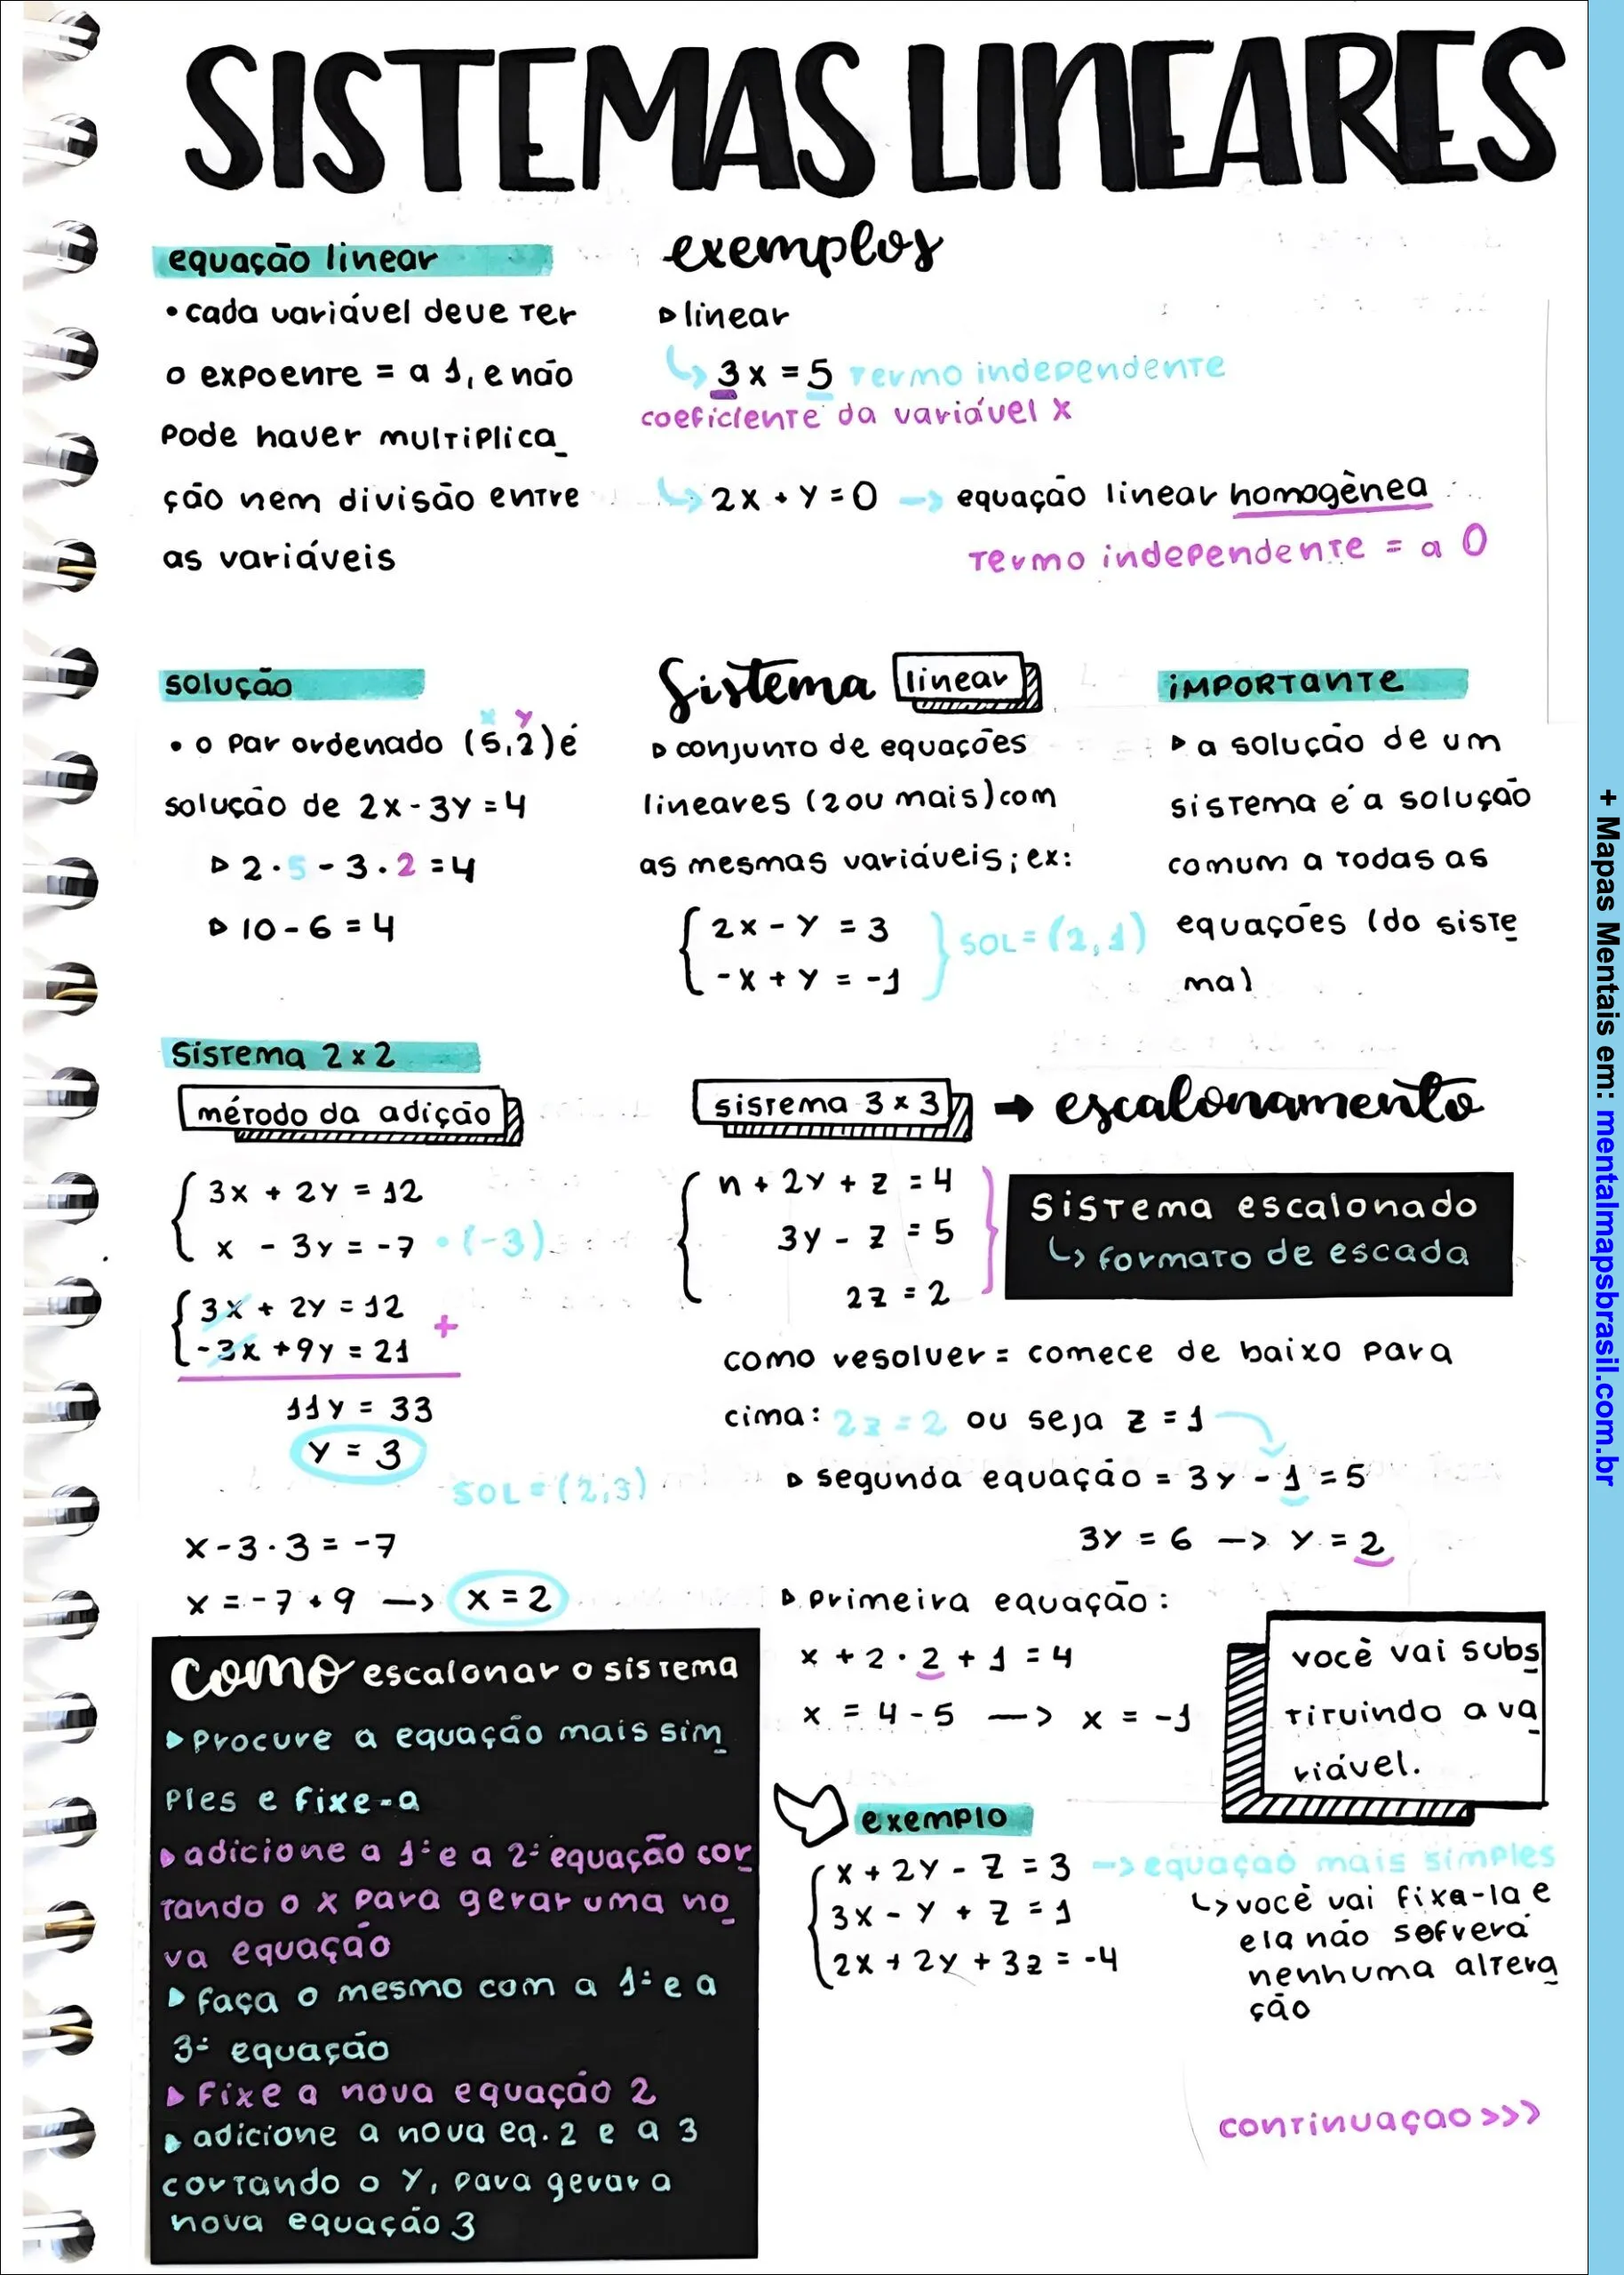 SISTEMAS LINEARES
equação linear
• cada variável deve ter
o expoenre = a 1, e não
pode haver multiplica_
ção nem divisão entre
as variáveis
exemplos
▷ linear
↳ 3x = 5 termo independente
coeficiente da variável x
↳ 2x + y = 0 → equação linear homogênea
termo independente = a 0
solução
x y
• o par ordenado (5,2) é
solução de 2x - 3y = 4
▷ 2 · 5 - 3 · 2 = 4
▷ 10 - 6 = 4
Sistema linear
▷ conjunto de equações
lineares (2 ou mais) com
as mesmas variáveis; ex:
2x - y = 3
-x + y = -1
SOL = (2,1)
importante
▷ a solução de um
sistema é a solução
comum a todas as
equações (do siste
ma)
Sistema 2x2
método da adição
3x + 2y = 12
x - 3y = -7 • (-3)
3x + 2y = 12
-3x + 9y = 21 +
11y = 33
y = 3
SOL = (2,3)
x - 3 · 3 = -7
x = -7 + 9 → x = 2
sistema 3x3 → escalonamento
n + 2y + z = 4
3y - z = 5
2z = 2
Sistema escalonado
↳ formato de escada
como resolver = comece de baixo para
cima: 2z = 2 ou seja z = 1
▷ segunda equação = 3y - 1 = 5
3y = 6 → y = 2
▷ primeira equação:
x + 2 · 2 + 1 = 4
x = 4 - 5 → x = -1
você vai subs
tiruindo a va
riável.
Como escalonar o sistema
▶ procure a equação mais sim_
ples e fixe-a
▶ adicione a 1ª e a 2ª equação cor
tando o x para gerar uma no_
va equação
▶ faça o mesmo com a 1ª e a
3ª equação
▶ fixe a nova equação 2
▶ adicione a nova eq. 2 e a 3
cortando o y, para gerar a
nova equação 3
exemplo
x + 2y - z = 3 → equação mais simples
3x - y + z = 1
2x + 2y + 3z = -4
↳ você vai fixa-la e
ela não sofrerá
nenhuma altera
ção
continuação >>>
+ Mapas Mentais em: mentalmapsbrasil.com.br